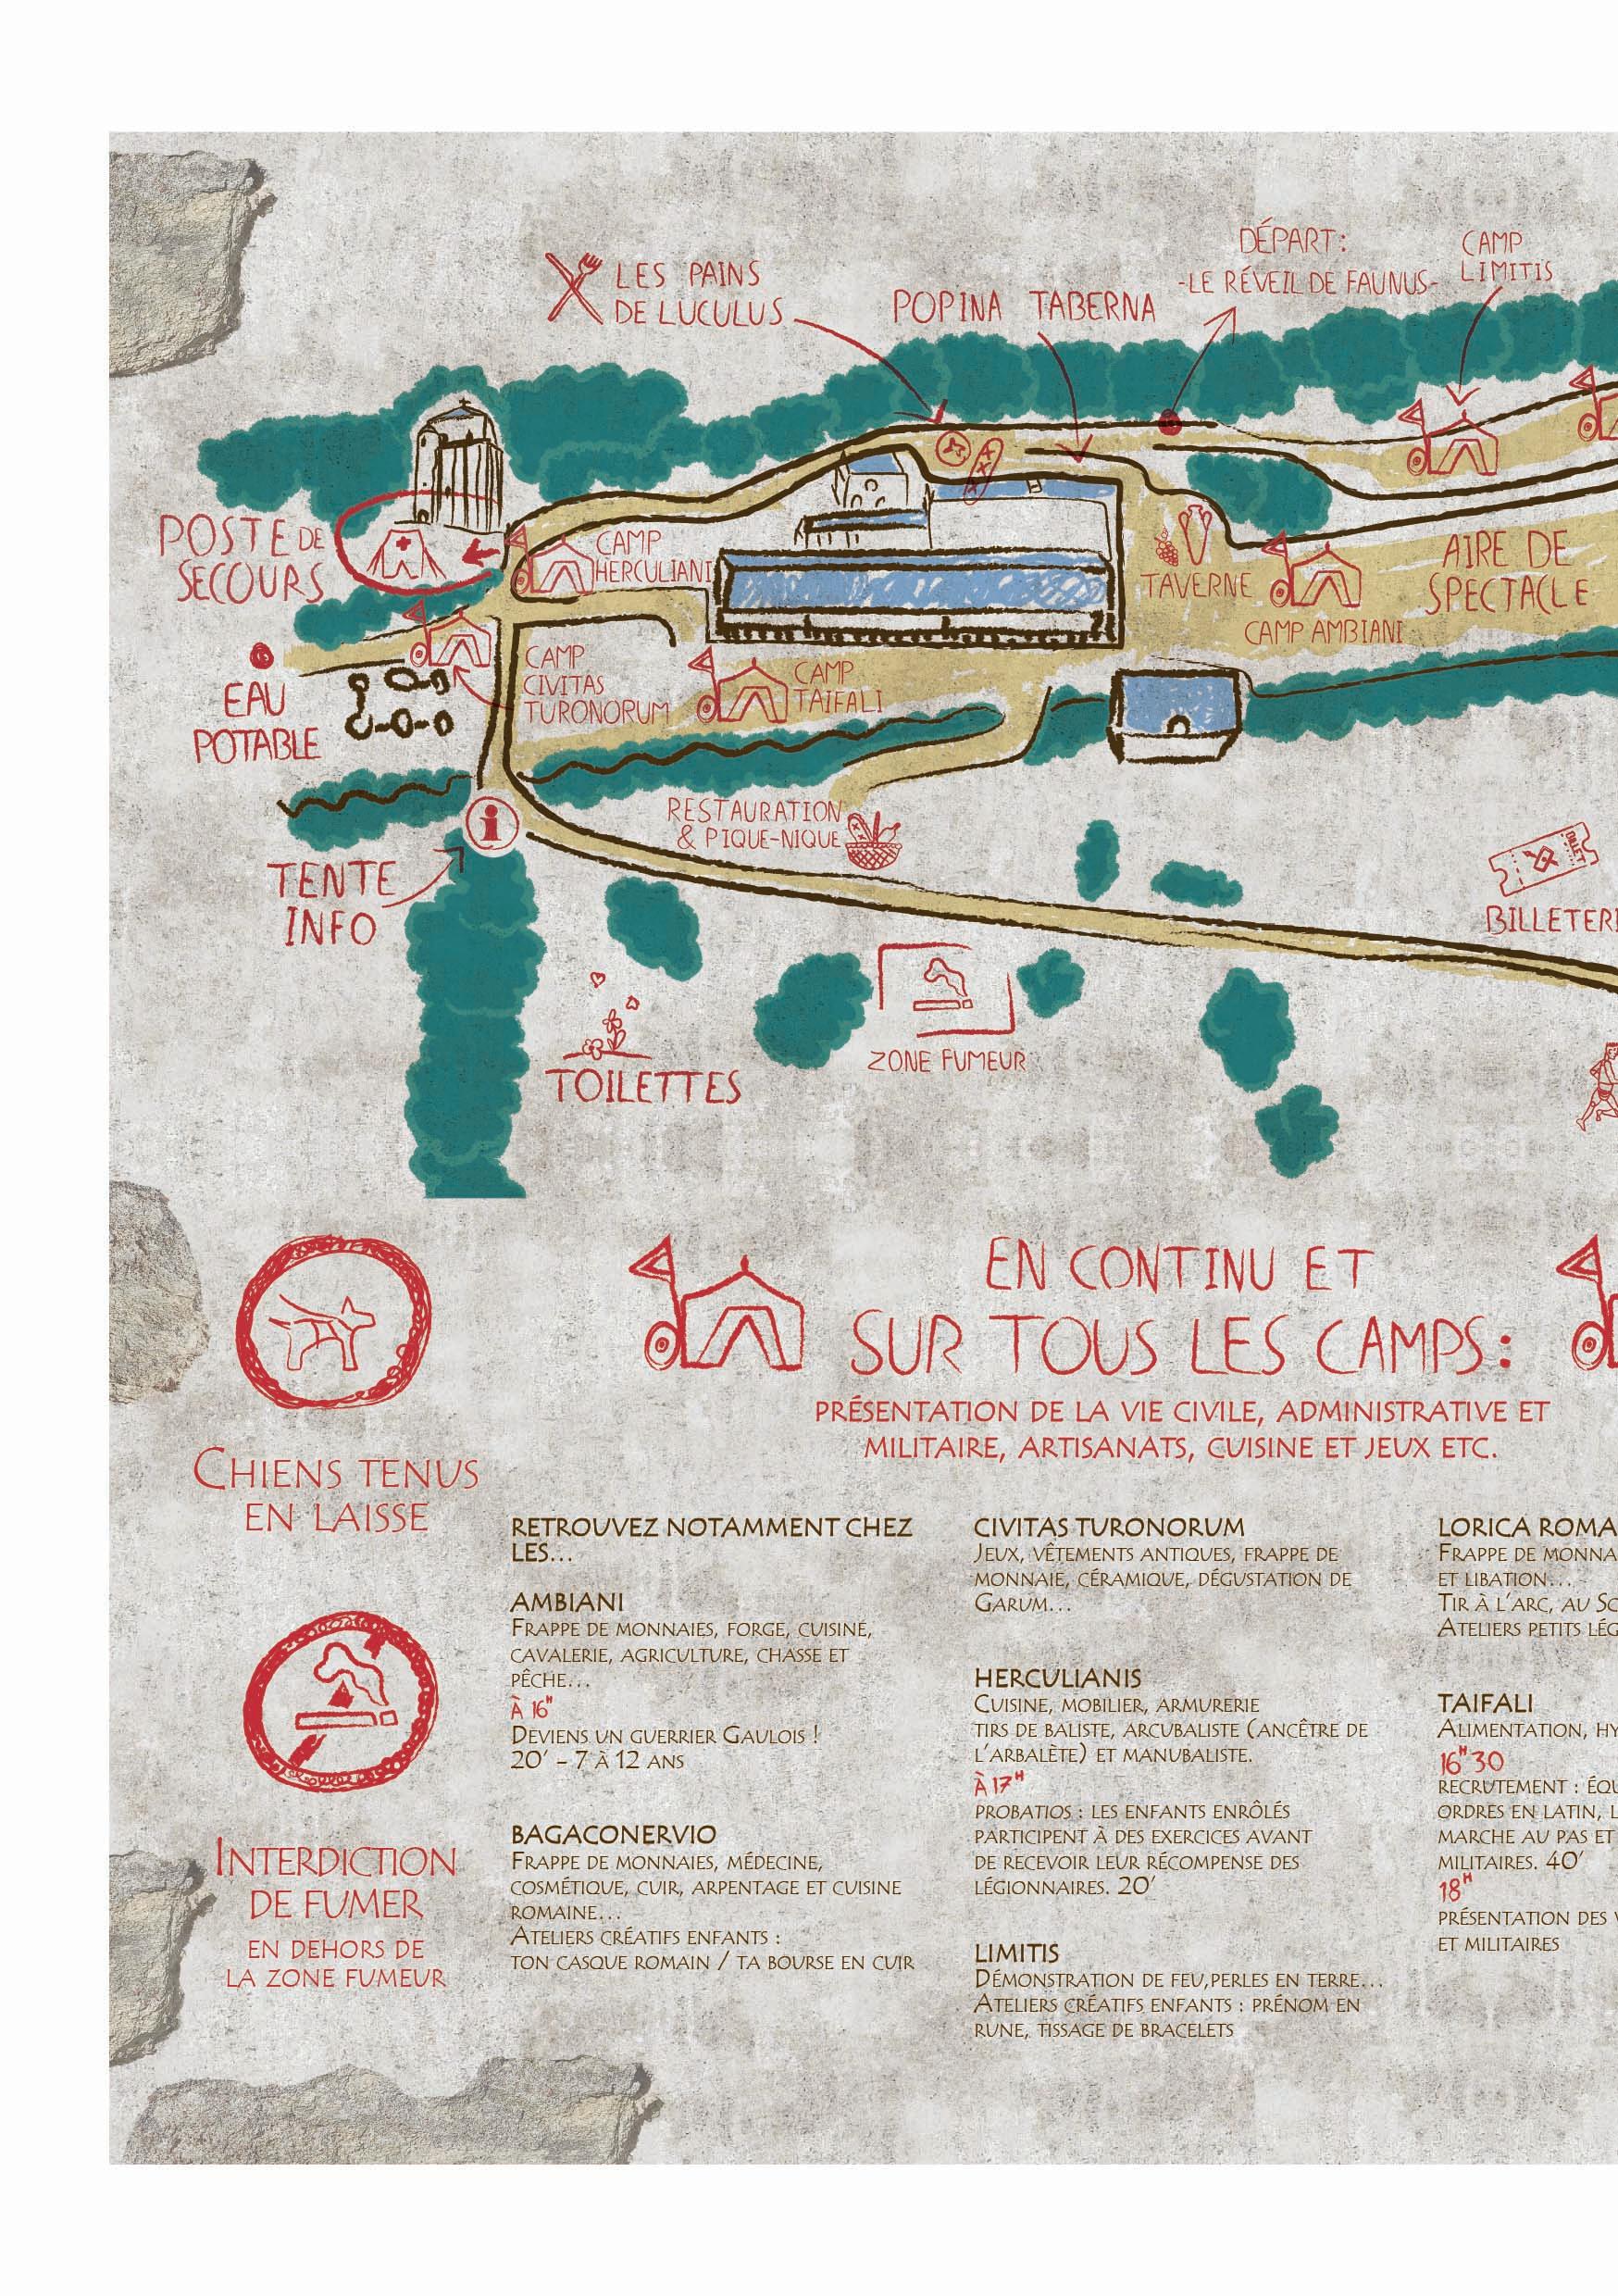 DÉPART:
-LE RÉVEIL DE FAUNUS-
CAMP
LIMITIS
LES PAINS
DE LUCULUS
POPINA TABERNA
POSTE DE
SECOURS
CAMP
HERCULIANI
TAVERNE
AIRE DE
SPECTACLE
CAMP AMBIANI
EAU
POTABLE
CAMP
CIVITAS
TURONORUM
CAMP
TAIFALI
RESTAURATION
& PIQUE-NIQUE
TENTE
INFO
BILLET
BILLETERI
ZONE FUMEUR
TOILETTES
EN CONTINU ET
SUR TOUS LES CAMPS:
PRÉSENTATION DE LA VIE CIVILE, ADMINISTRATIVE ET
MILITAIRE, ARTISANATS, CUISINE ET JEUX ETC.
CHIENS TENUS
EN LAISSE
INTERDICTION
DE FUMER
EN DEHORS DE
LA ZONE FUMEUR
RETROUVEZ NOTAMMENT CHEZ
LES...
AMBIANI
FRAPPE DE MONNAIES, FORGE, CUISINE,
CAVALERIE, AGRICULTURE, CHASSE ET
PÊCHE...
À 16H
DEVIENS UN GUERRIER GAULOIS !
20' - 7 À 12 ANS
BAGACONERVIO
FRAPPE DE MONNAIES, MÉDECINE,
COSMÉTIQUE, CUIR, ARPENTAGE ET CUISINE
ROMAINE...
ATELIERS CRÉATIFS ENFANTS :
TON CASQUE ROMAIN / TA BOURSE EN CUIR
CIVITAS TURONORUM
JEUX, VÊTEMENTS ANTIQUES, FRAPPE DE
MONNAIE, CÉRAMIQUE, DÉGUSTATION DE
GARUM...
HERCULIANIS
CUISINE, MOBILIER, ARMURERIE
TIRS DE BALISTE, ARCUBALISTE (ANCÊTRE DE
L'ARBALÈTE) ET MANUBALISTE.
À 17H
PROBATIOS : LES ENFANTS ENRÔLÉS
PARTICIPENT À DES EXERCICES AVANT
DE RECEVOIR LEUR RÉCOMPENSE DES
LÉGIONNAIRES. 20'
LIMITIS
DÉMONSTRATION DE FEU,PERLES EN TERRE...
ATELIERS CRÉATIFS ENFANTS : PRÉNOM EN
RUNE, TISSAGE DE BRACELETS
LORICA ROMA
FRAPPE DE MONNA
ET LIBATION...
TIR À L'ARC, AU SC
ATELIERS PETITS LÉG
TAIFALI
ALIMENTATION, HY
16H30
RECRUTEMENT : ÉQU
ORDRES EN LATIN, L
MARCHE AU PAS ET
MILITAIRES. 40'
18H
PRÉSENTATION DES V
ET MILITAIRES